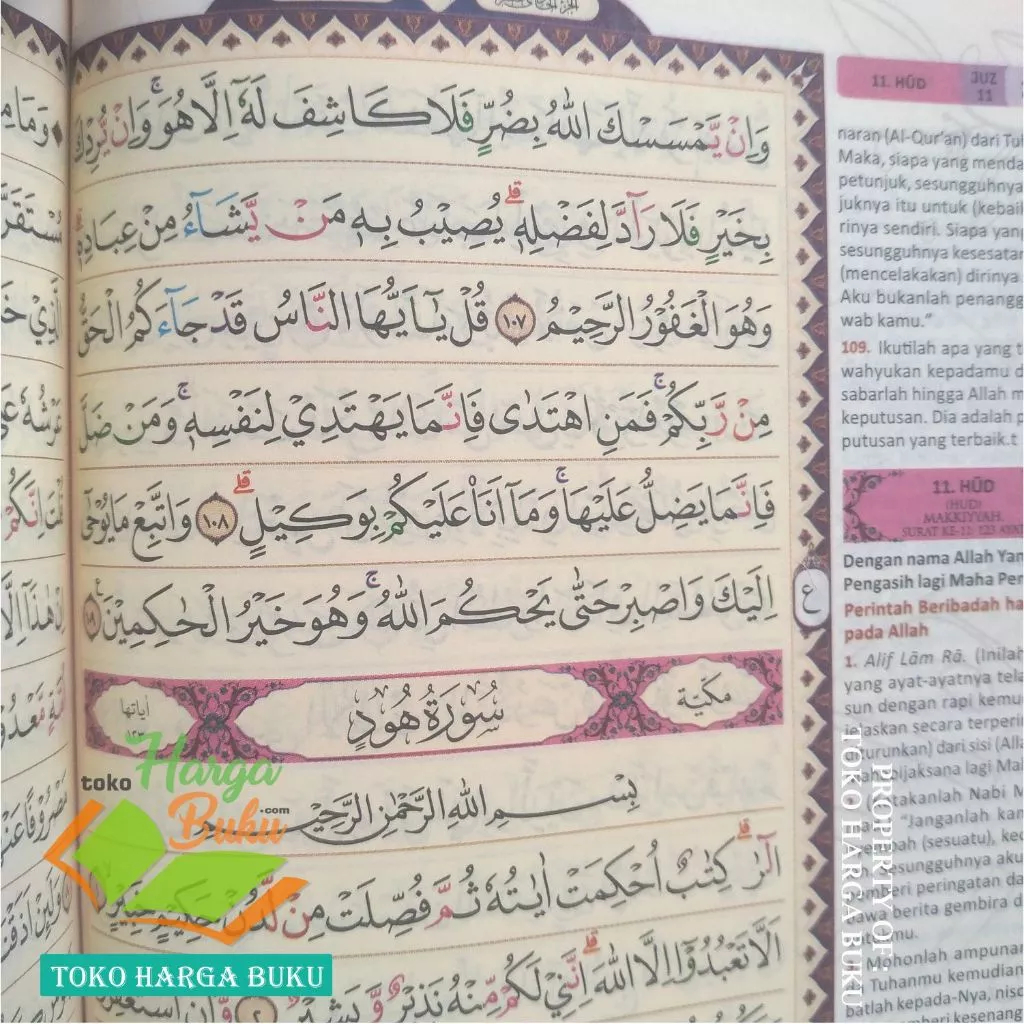 وَاِنْ يَّمْسَسْكَ اللّٰهُ بِضُرٍّ فَلَا كَاشِفَ لَهٗٓ اِلَّا هُوَ ۚوَاِنْ يُّرِدْكَ
بِخَيْرٍ فَلَا رَاۤدَّ لِفَضْلِهٖۗ يُصِيْبُ بِهٖ مَنْ يَّشَاۤءُ مِنْ عِبَادِهٖۗ
وَهُوَ الْغَفُوْرُ الرَّحِيْمُ ١٠٧ قُلْ يٰٓاَيُّهَا النَّاسُ قَدْ جَاۤءَكُمُ الْحَقُّ
مِنْ رَّبِّكُمْ ۚفَمَنِ اهْتَدٰى فَاِنَّمَا يَهْتَدِيْ لِنَفْسِهٖ ۚوَمَنْ ضَلَّ
فَاِنَّمَا يَضِلُّ عَلَيْهَا ۚوَمَآ اَنَا۠ عَلَيْكُمْ بِوَكِيْلٍۗ ١٠٨ وَاتَّبِعْ مَا يُوْحٰٓى
اِلَيْكَ وَاصْبِرْ حَتّٰى يَحْكُمَ اللّٰهُ ۚوَهُوَ خَيْرُ الْحٰكِمِيْنَ ࣖ ١٠٩
مكيّة
سُوْرَةُ هُوْدٍ
اٰياتها ١٢٣
بِسْمِ اللّٰهِ الرَّحْمٰنِ الرَّحِيْمِ
الۤرٰ ۗ كِتٰبٌ اُحْكِمَتْ اٰيٰتُهٗ ثُمَّ فُصِّلَتْ مِنْ لَّدُنْ حَكِيْمٍ خَبِيْرٍ
اَلَّا تَعْبُدُوْٓا اِلَّا اللّٰهَ ۗاِنَّنِيْ لَكُمْ مِّنْهُ نَذِيْرٌ وَّبَشِيْرٌ ٢ وَّاَنِ اسْتَغْفِرُوْا
ع
11. HŪD
JUZ 11
naran (Al-Qur'an) dari Tuh
Maka, siapa yang menda
petunjuk, sesungguhnya
juknya itu untuk (kebaik
rinya sendiri. Siapa yang
sesungguhnya kesesatan
(mencelakakan) dirinya
Aku bukanlah penangg
wab kamu."
109. Ikutilah apa yang t
wahyukan kepadamu d
sabarlah hingga Allah m
keputusan. Dia adalah p
putusan yang terbaik.t
11. HŪD
(HUD)
MAKKIYYAH.
SURAT KE-11: 123 AYAT
Dengan nama Allah Yan
Pengasih lagi Maha Pen
Perintah Beribadah ha
pada Allah
1. Alif Lām Rā. (Inilah
yang ayat-ayatnya tela
sun dengan rapi kemu
jelaskan secara terperin
diturunkan) dari sisi (Alla
bijaksana lagi Mah
takanlah Nabi M
"Janganlah kam
bah (sesuatu), kec
esungguhnya aku
pemberi peringatan da
bawa berita gembira d
mu.
Mohonlah ampunan
Tuhanmu kemudian
batlah kepada-Nya, nisc
beri kesenang
toko Harga Buku .com
TOKO HARGA BUKU
PROPERTY OF :
TOKO HARGA BUKU